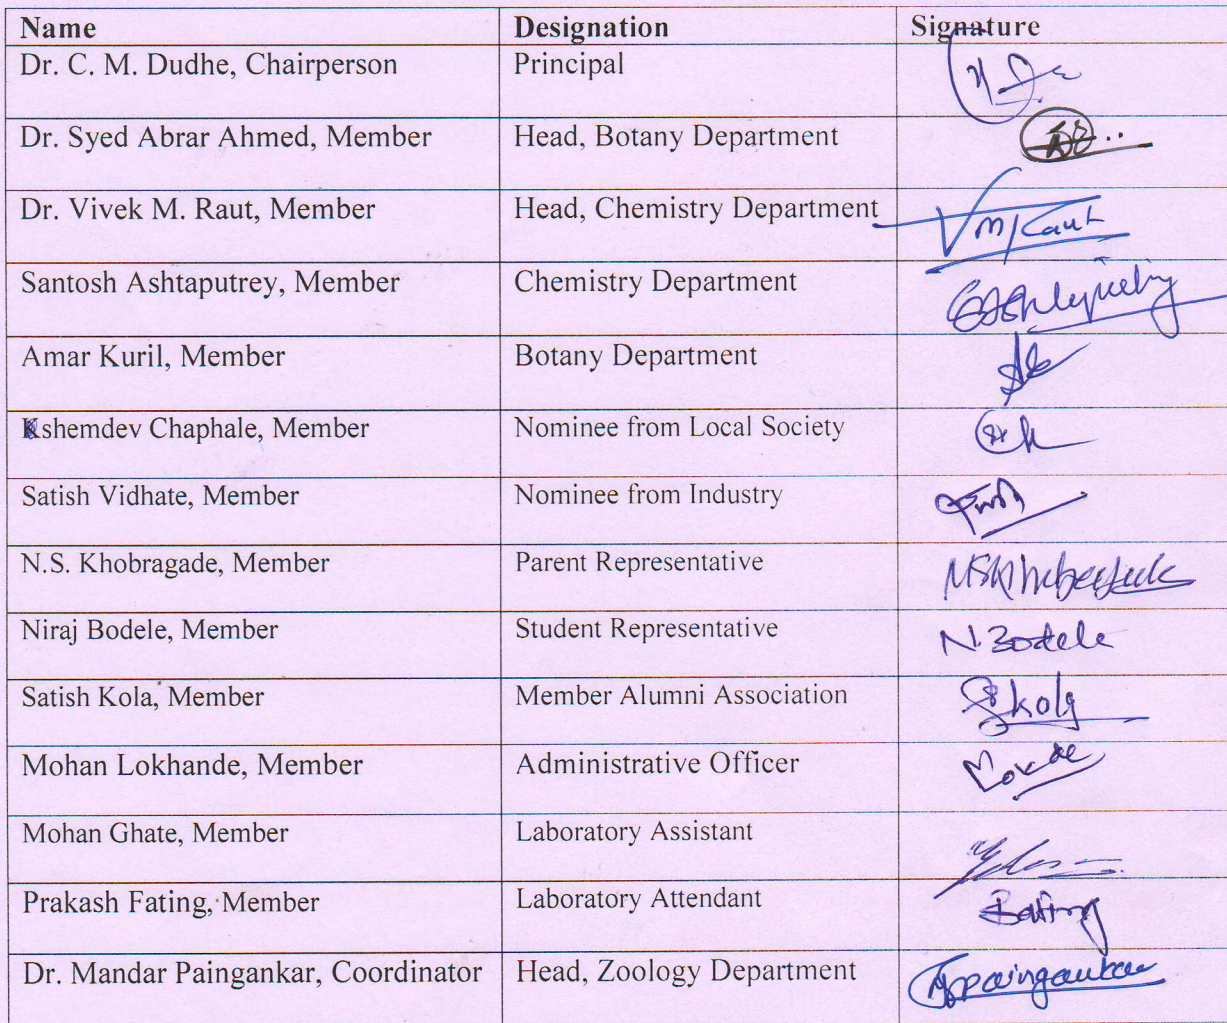 Name Designation Signature
Dr. C. M. Dudhe, Chairperson Principal
Dr. Syed Abrar Ahmed, Member Head, Botany Department
Dr. Vivek M. Raut, Member Head, Chemistry Department VMRaut
Santosh Ashtaputrey, Member Chemistry Department
Amar Kuril, Member Botany Department
Kshemdev Chaphale, Member Nominee from Local Society
Satish Vidhate, Member Nominee from Industry
N.S. Khobragade, Member Parent Representative
Niraj Bodele, Member Student Representative N. Bodele
Satish Kola, Member Member Alumni Association Skola
Mohan Lokhande, Member Administrative Officer
Mohan Ghate, Member Laboratory Assistant
Prakash Fating, Member Laboratory Attendant
Dr. Mandar Paingankar, Coordinator Head, Zoology Department